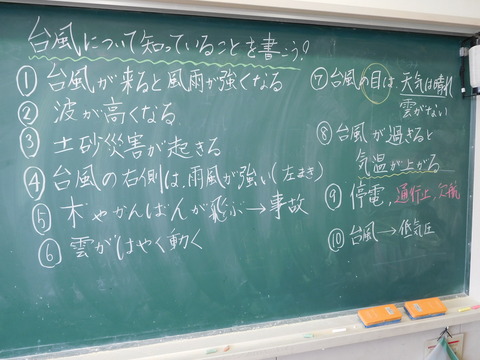 台風について知っていることを書こう!
① 台風が来ると風雨が強くなる
② 波が高くなる
③ 土砂災害が起きる
④ 台風の右側は、雨風が強い(左まき)
⑤ 木やかんばんが飛ぶ→事故
⑥ 雲がはやく動く
⑦ 台風の目は、天気は晴れ
雲がない
⑧ 台風が過ぎると
気温が上がる
⑨ 停電、通行止、欠航
⑩ 台風→低気圧